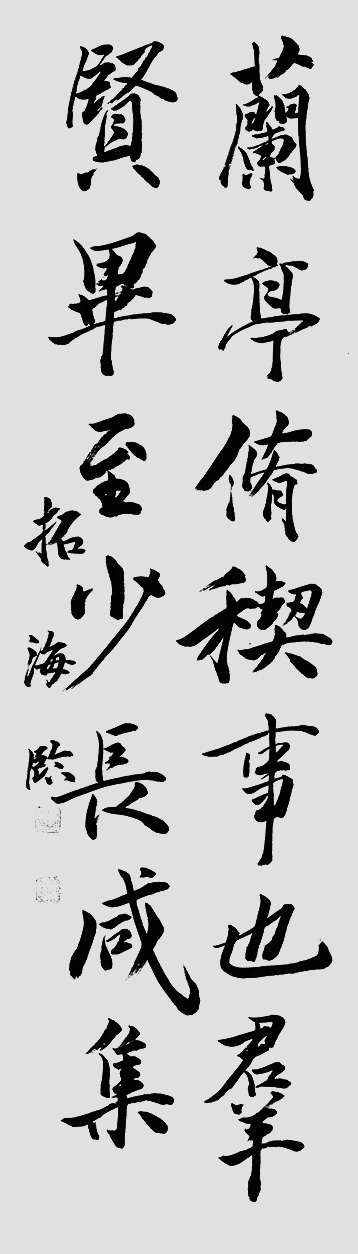 蘭亭脩稧事也羣
賢畢至少長咸集
拓海臨